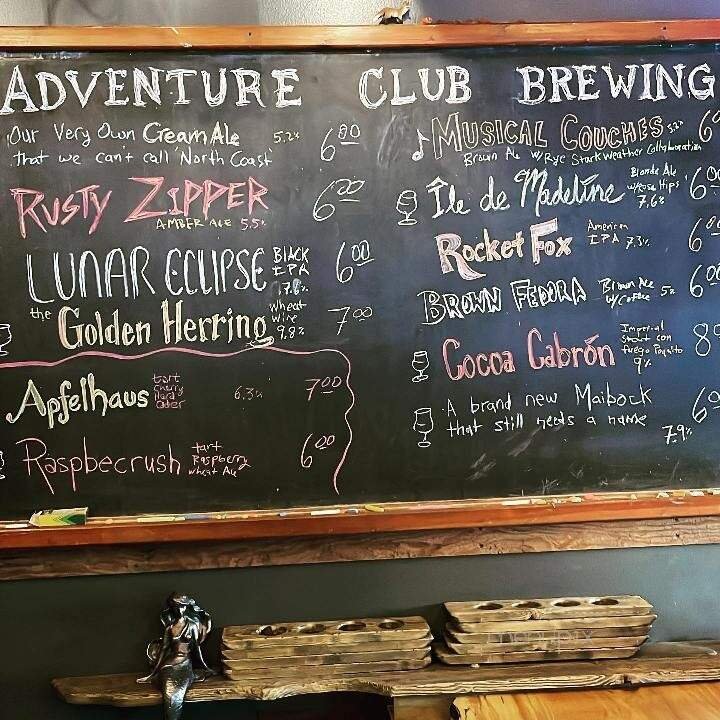 ADVENTURE CLUB BREWING
Our Very Own Cream Ale 5.2%
that we can't call North Coast
6.00
RUSTY ZIPPER
AMBER ALE 5.5%
6.00
LUNAR ECLIPSE BLACK
IPA
7.8%
6.00
the Golden Herring Wheat
Wine
9.8%
7.00
Apfelhaus tart
cherry
Hard
Cider
6.3%
7.00
Raspbecrush tart
Raspberry
Wheat Ale
6.00
MUSICAL COUCHES
Brown Ale w/Rye Starkweather Collaboration
Île de Madeline Blonde Ale
w/Rose Hips
7.6%
Rocket Fox American
IPA 7.3%
BROWN FEDORA Brown Ale 5%
w/Coffee
Cocoa Cabrón Imperial
stout con
fuego Poquito
9%
A brand new Maibock
that still needs a name
7.9%